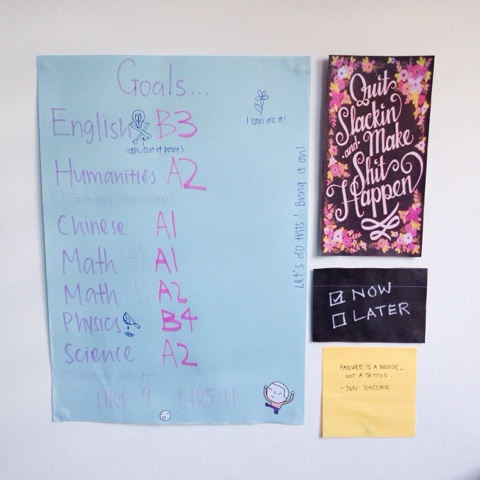 Goals...
English B3
I can do it!
Humanities A2
Chinese A1
Math (E) A1
Math (A) A2
Physics B4
Science A2
L1R4 9 L1R5 11
Let's do this! Bring it on!
Quit
Slackin
and Make
Shit
Happen
NOW
LATER
FAILURE IS A BRUISE,
NOT A TATTOO.
- JON SINCLAIR